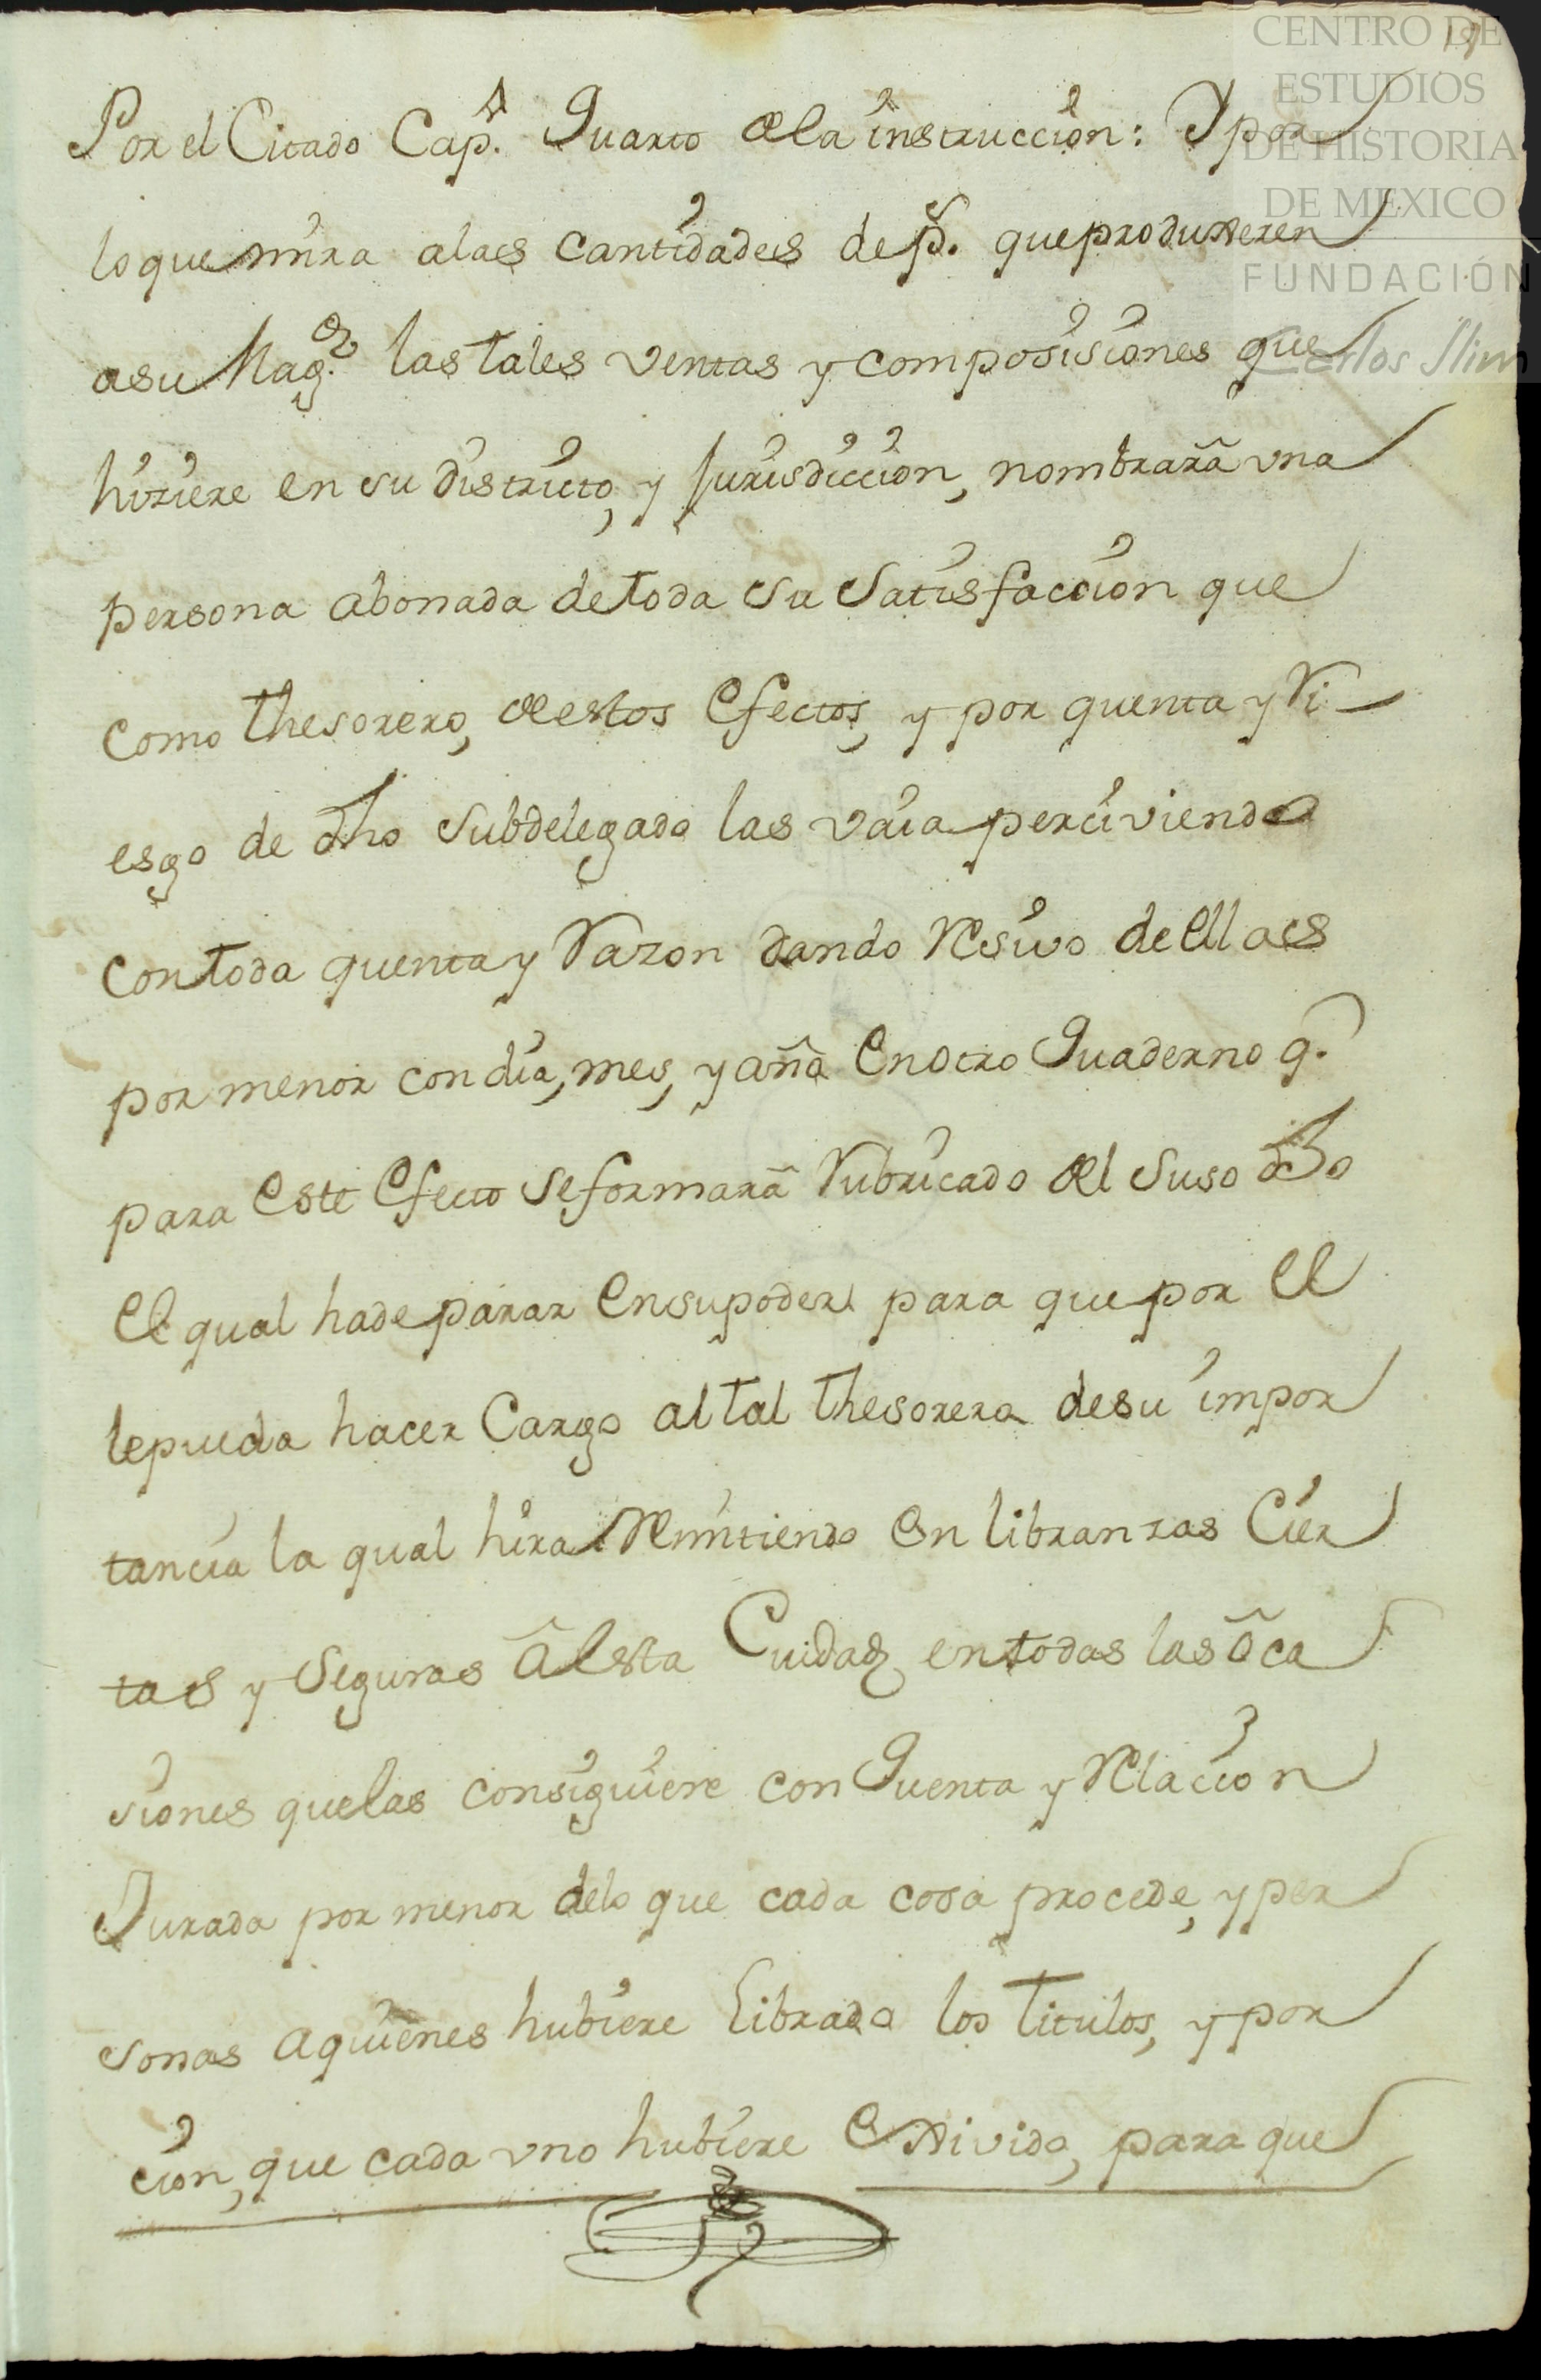 CENTRO DE
ESTUDIOS
DE HISTORIA
DE MEXICO
FUNDACIÓN
Carlos Slim
Por el Citado Cap.º Quarto de la instruccion: Y por
lo que mira alas cantidades de p.s que produxeren
asu Mag.d las tales ventas y composisiones que
hiziere en su distrito, y Jurisdiccion, nombrarã vna
persona abonada de toda su satisfaccion que
como thesorero, de estos efectos, y por quenta y Ri-
esgo de dho Subdelegado las vaia perciviendo
con toda quenta y Razon dando Resivo de ellas
por menor con dia, mes, y año en otro Quaderno q.
para este efecto se formarã Rubricado del Suso dho
el qual ha de parar en su poder para que por el
le pueda hacer Cargo al tal thesorero de su impor
tancia la qual hira Remitiendo en libranzas Cier
tas y Seguras â esta Cuidad, en todas las õca
siones que las consiguiere con Quenta y Relacion
Jurada por menor de lo que cada cosa procede, y per
sonas a quienes hubiere librado los titulos, y por
cion, que cada vno hubiere exivido, para que